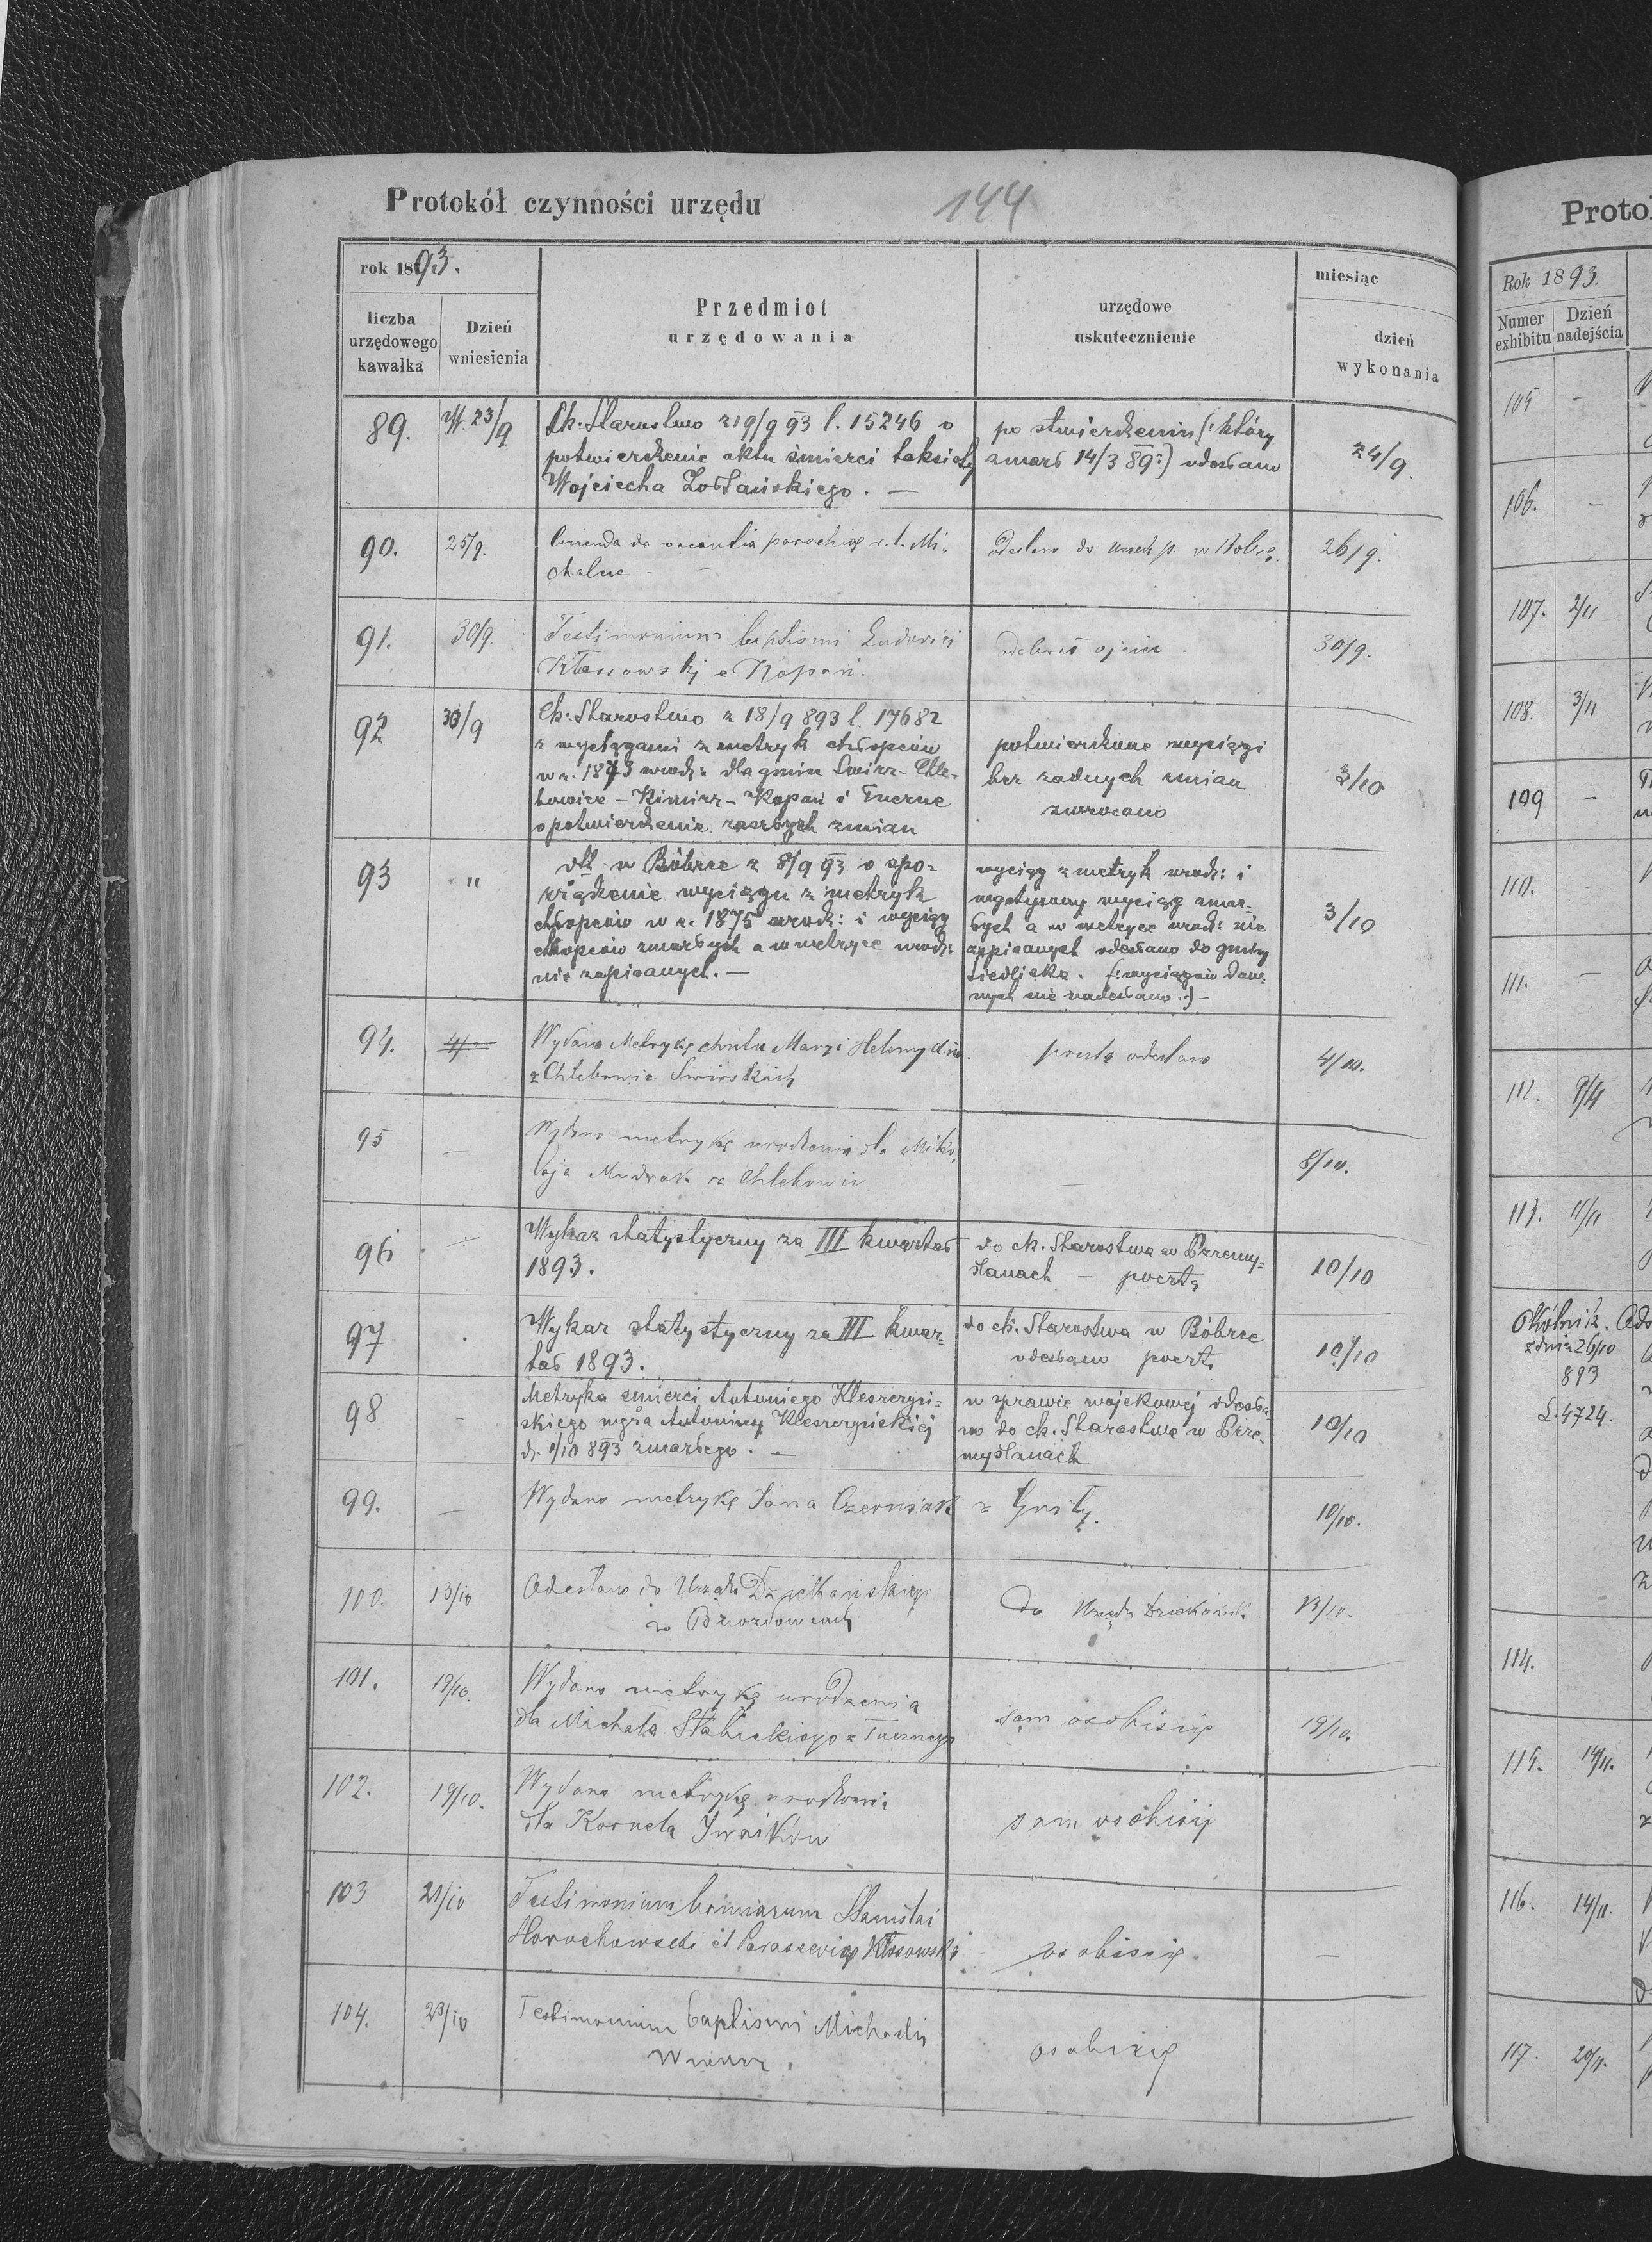 Protokół czynności urzędu
144
rok 1893.
liczba urzędowego kawałka
Dzień wniesienia
Przedmiot urzędowania
urzędowe uskutecznienie
miesiąc
dzień wykonania
89. W. 23/9
Ck: Starostwo z 19/9 93 l. 15246 o
potwierdzenie aktu śmierci taksisty
Wojciecha
po stwierdzeniu (: który
zmarł 14/3 89 :) odesłano
24/9
90. 25/9.
parochię r. l. Mi-
chalne
26/9.
91. 30/9.
Testimonium baptismi Ludovici
Kłossowskj e Kopań.
odebrał ojciec.
30/9.
92 30/9
Ck: Starostwo z 18/9 893 l. 17682
z wyciągami z metryk chłopców
w r. 1873 urodz: dla gmin Świrz - Chle-
bowice - Kimirz - Kopań i Tuczne
o potwierdzenie zaszłych zmian
potwierdzone wyciągi
bez żadnych zmian
zwrócono
3/10
93 "
dtt w Bóbrce z 8/9 93 o spo-
rządzenie wyciągu z metryk
chłopców w r. 1875 urodz: i wyciąg
chłopców zmarłych a w metryce urodz:
nie zapisanych. —
wyciąg z metryk urodz: i
negatywny wyciąg zmar-
łych a w metryce urodz: nie
zapisanych odesłano do gminy
Siedliska. (: wyciągów daw-
nych nie nadesłano :) -
3/10
94.
Wydano Metrykę chrztu Maryi Heleny
z Chlebowic Świrskich
pocztą odesłano
4/10.
95 —
Wydano metrykę urodzenia dla Miko-
łaja Mudrak z Chlebowic
—
8/10.
96
Wykaz statystyczny za III kwartał
1893.
do ck. Starostwa w Przemy-
ślanach — pocztą
10/10
97
Wykaz statystyczny za III kwar-
tał 1893.
do ck. Starostwa w Bóbrce
odesłano pocztą
10/10
98 -
Metryka śmierci Antoniego Kleszczyń-
skiego męża Antoniny Kleszczyńskiej
d. 1/10 893 zmarłego. —
w sprawie wojskowej odesła-
no do ck. Starostwa w Prze-
myślanach
10/10
99. —
Wydano metrykę Jana Czerniak
z Gniłej.
10/10.
100. 13/10
Odesłano do Urzędu Dziekańskiego
w Brzozdowcach
Do Urzędu Dziekańsk
13/10.
101. 19/10.
Wydano metrykę urodzenia
dla Michała Słabickiego z Tucznego
sam osobiście
19/10.
102. 19/10.
Wydano metrykę urodzenia
dla Kornela Iwaśków
sam osobiście
103 21/10
Testimonium Stanislai
Horochowski et Parascevię Kłosowski
osobiście.
—
104. 23/10
Testimonium baptismi Michaelis
osobiście
Proto
Rok 1893.
Numer exhibitu
Dzień nadejścia
105 -
106. -
107. 2/11
108. 3/11
109 -
110. -
111. -
112. 9/11
113. 11/11
Okólnik.
z dnia 26/10
893
L. 4724.
114.
115. 14/11.
116. 14/11.
117. 20/11.